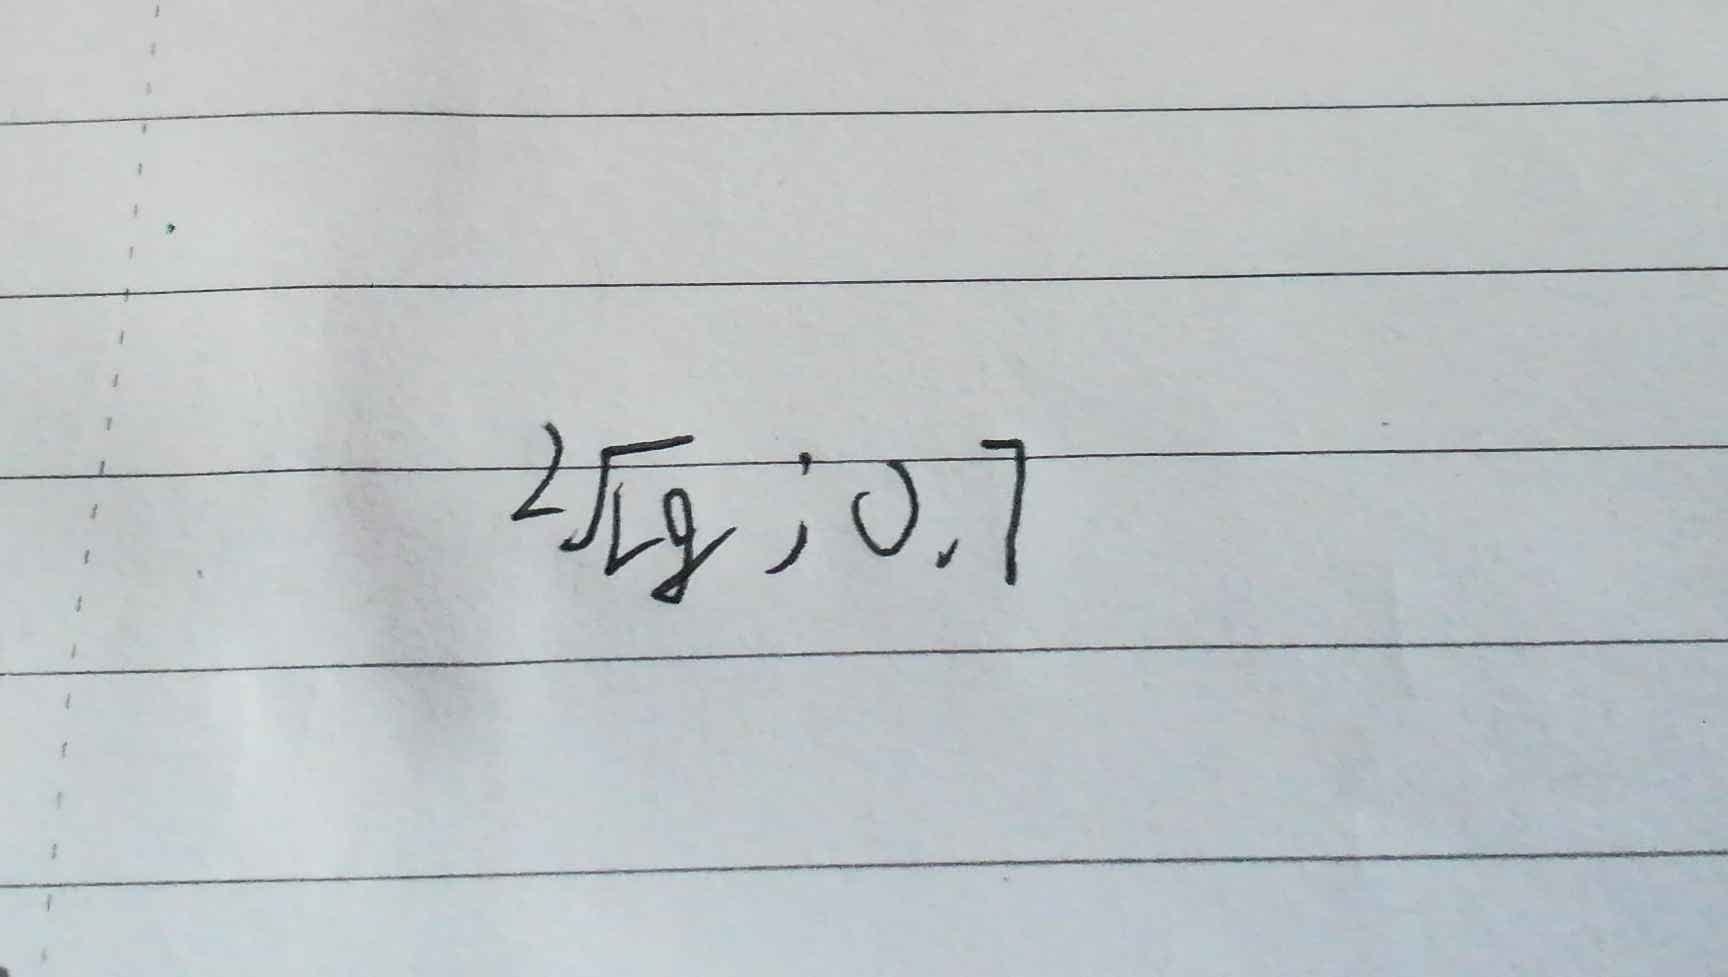 ²√Lg ; 0.7